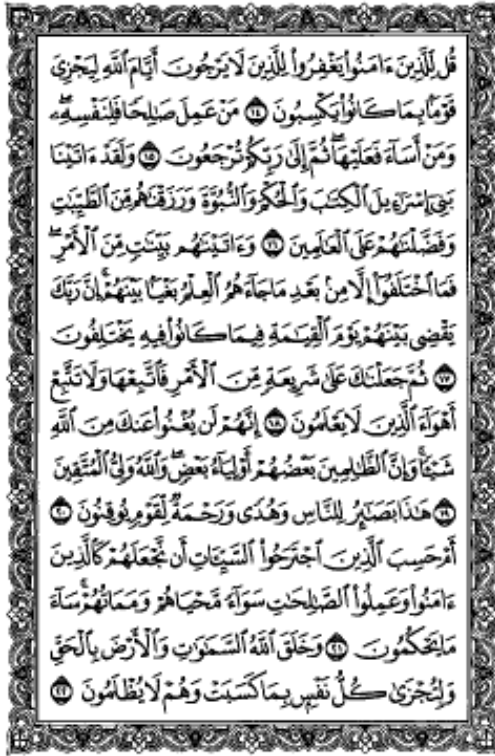 قُل لِّلَّذِينَ ءَامَنُوا۟ يَغْفِرُوا۟ لِلَّذِينَ لَا يَرْجُونَ أَيَّامَ ٱللَّهِ لِيَجْزِىَ
قَوْمًۢا بِمَا كَانُوا۟ يَكْسِبُونَ ١٤ مَنْ عَمِلَ صَـٰلِحًا فَلِنَفْسِهِۦ ۖ
وَمَنْ أَسَآءَ فَعَلَيْهَا ۖ ثُمَّ إِلَىٰ رَبِّكُمْ تُرْجَعُونَ ١٥ وَلَقَدْ ءَاتَيْنَا
بَنِىٓ إِسْرَٰٓءِيلَ ٱلْكِتَـٰبَ وَٱلْحُكْمَ وَٱلنُّبُوَّةَ وَرَزَقْنَـٰهُم مِّنَ ٱلطَّيِّبَـٰتِ
وَفَضَّلْنَـٰهُمْ عَلَى ٱلْعَـٰلَمِينَ ١٦ وَءَاتَيْنَـٰهُم بَيِّنَـٰتٍ مِّنَ ٱلْأَمْرِ ۖ
فَمَا ٱخْتَلَفُوٓا۟ إِلَّا مِنۢ بَعْدِ مَا جَآءَهُمُ ٱلْعِلْمُ بَغْيًۢا بَيْنَهُمْ ۚ إِنَّ رَبَّكَ
يَقْضِى بَيْنَهُمْ يَوْمَ ٱلْقِيَـٰمَةِ فِيمَا كَانُوا۟ فِيهِ يَخْتَلِفُونَ
١٧ ثُمَّ جَعَلْنَـٰكَ عَلَىٰ شَرِيعَةٍ مِّنَ ٱلْأَمْرِ فَٱتَّبِعْهَا وَلَا تَتَّبِعْ
أَهْوَآءَ ٱلَّذِينَ لَا يَعْلَمُونَ ١٨ إِنَّهُمْ لَن يُغْنُوا۟ عَنكَ مِنَ ٱللَّهِ
شَيْـًٔا ۚ وَإِنَّ ٱلظَّـٰلِمِينَ بَعْضُهُمْ أَوْلِيَآءُ بَعْضٍ ۖ وَٱللَّهُ وَلِىُّ ٱلْمُتَّقِينَ
١٩ هَـٰذَا بَصَـٰٓئِرُ لِلنَّاسِ وَهُدًى وَرَحْمَةٌ لِّقَوْمٍ يُوقِنُونَ ٢٠
أَمْ حَسِبَ ٱلَّذِينَ ٱجْتَرَحُوا۟ ٱلسَّيِّـَٔاتِ أَن نَّجْعَلَهُمْ كَٱلَّذِينَ
ءَامَنُوا۟ وَعَمِلُوا۟ ٱلصَّـٰلِحَـٰتِ سَوَآءً مَّحْيَاهُمْ وَمَمَاتُهُمْ ۚ سَآءَ
مَا يَحْكُمُونَ ٢١ وَخَلَقَ ٱللَّهُ ٱلسَّمَـٰوَٰتِ وَٱلْأَرْضَ بِٱلْحَقِّ
وَلِتُجْزَىٰ كُلُّ نَفْسٍۭ بِمَا كَسَبَتْ وَهُمْ لَا يُظْلَمُونَ ٢٢